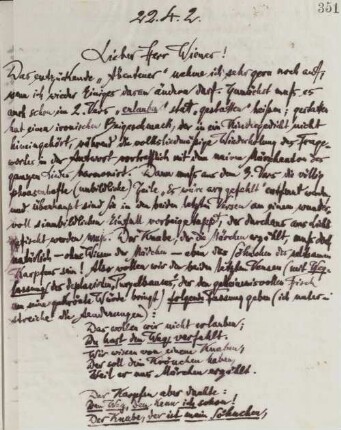 351
22.4.2.
Lieber Herr Wiener!
Das entzückende „Abenteuer" nehme ich sehr gern noch auf,
wenn ich wieder Einiges daran ändern darf. Zunächst muß es
auch schon im 2. Vers „erlauben" statt „gestatten" heißen; gestatten
hat einen ironischen Beigeschmack, der in ein Kindergedicht nicht
hineingehört, während die volkstümliche Wiederholung des Frage-
wortes in der Antwort vortrefflich mit dem naiven Märchenton des
ganzen Liedes harmonirt. Dann muß aus dem 3. Vers die völlig
phrasenhafte (unbildliche) Zeile „es wäre arg gefehlt" entfernt werden
und überhaupt sind Sie in den beiden letzten Versen an einem wunder-
voll sinnbildlichen Einfall vorbeigetappt, der durchaus ans Licht
gefischt werden muß. Der Knabe, der die Märchen erzählt, muß doch
natürlich – ohne Wissen der Mädchen – eben das Söhnchen des
Karpfens sein! Also wollen wir den beiden letzten Versen (mit Weg-
lassung des deplacierten, der den geheimnisvollen Fisch
um seine gebührende Würde bringt) folgende Fassung geben (ich unter-
streiche die Aenderungen):
Das wollen wir nicht erlauben,
Du hast den Weg verfehlt.
Wir wissen von einem Knaben,
Der soll die Krönchen haben,
Weil er uns Märchen erzählt.
Der Karpfen aber dachte:
Den Weg, den kenn ich schon!
Der Knabe, der ist mein Söhnchen,